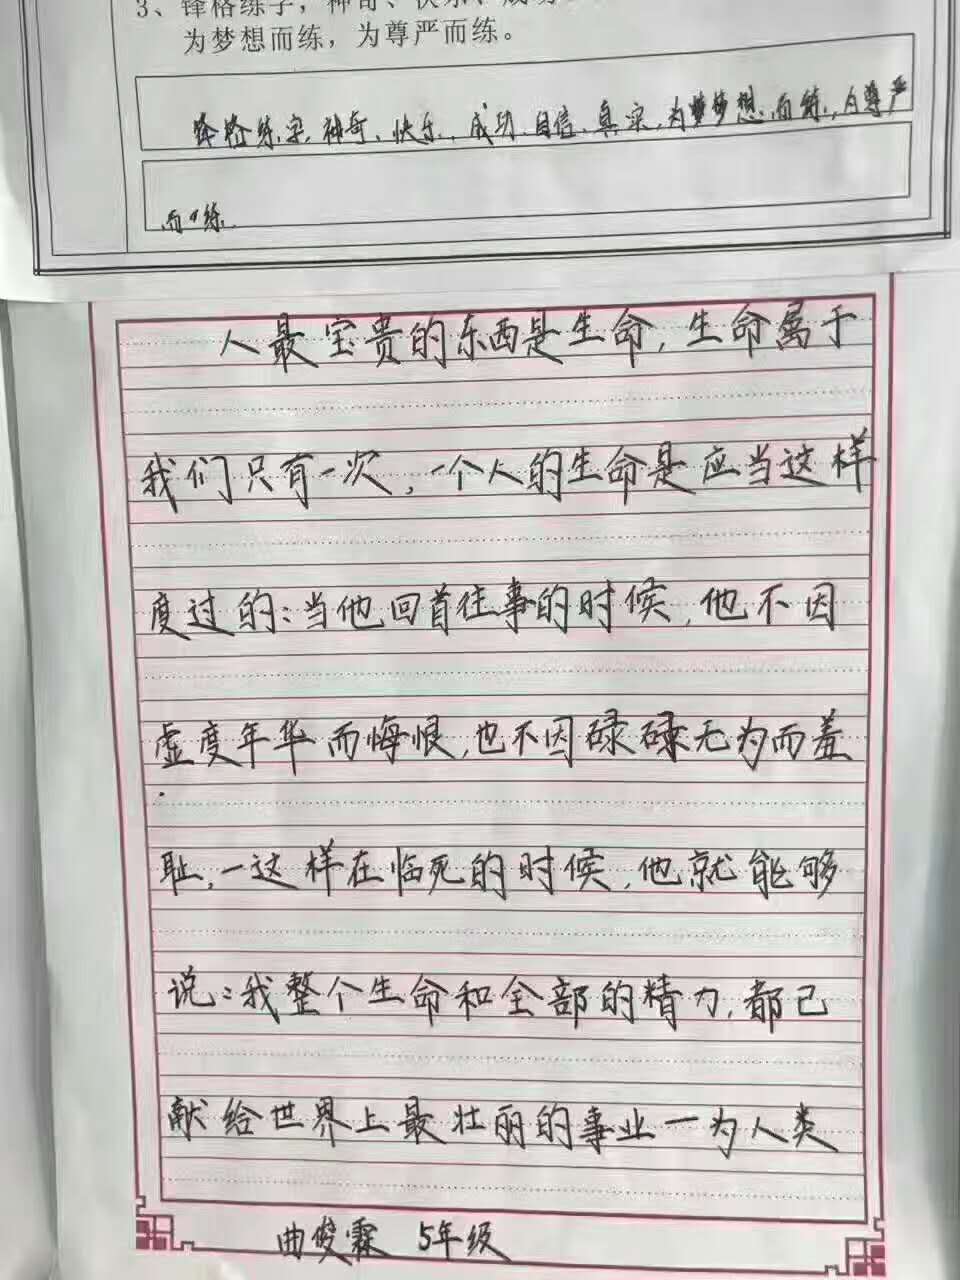 3、锋格练字，神奇、快乐、成功
为梦想而练，为尊严而练。
锋格练字,神奇、快乐、成功、自信、真实,为梦梦想而练,为尊严
而练.
人最宝贵的东西是生命,生命属于
我们只有一次,一个人的生命是应当这样
度过的:当他回首往事的时候,他不因
虚度年华而悔恨,也不因碌碌无为而羞
耻,一这样在临死的时候,他就能够
说:我整个生命和全部的精力,都已
献给世界上最壮丽的事业一为人类
曲俊霖 5年级